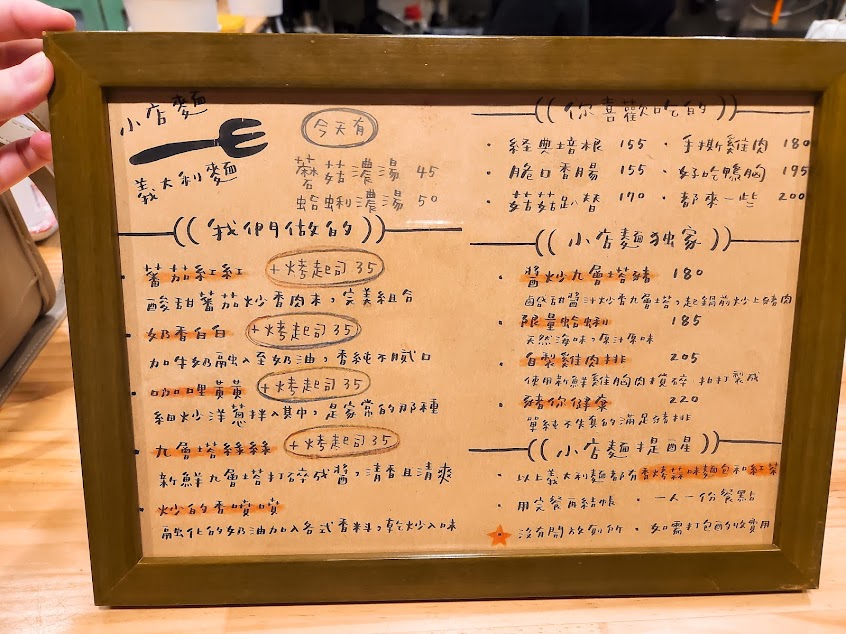 小店麵
義大利麵
今天有
蘑菇濃湯 45
蛤蜊濃湯 50
((我們做的))
· 蕃茄紅紅 +烤起司35
酸甜蕃茄炒香肉末,完美組合
· 奶香白白 +烤起司35
加牛奶融入至奶油,香純不膩口
· 咖哩黃黃 +烤起司35
細炒洋蔥拌入其中,是家常的那種
· 九層塔綠綠 +烤起司35
新鮮九層塔打碎成醬,清香且清爽
· 炒的香噴噴
融化的奶油加入各式香料,乾炒入味
((你喜歡吃的))
· 経典培根 155 · 手撕雞肉 180
· 脆口香腸 155 · 好吃鴨胸 195
· 菇菇趴替 170 · 都來一些 200
((小店麵独家))
· 醬炒九層塔豬 180
鹹甜醬汁炒香九層塔,起鍋前炒上豬肉
· 限量蛤蜊 185
天然海味,原汁原味
· 自製雞肉排 205
使用新鮮雞胸肉攪碎 拍打製成
· 豬你健康 220
單純不失真的滿足豬排
((小店麵提醒))
· 以上義大利麵都有香烤蒜味麵包和紅茶
· 用完餐再結帳 · 一人一份餐點
· 沒有開放廁所 · 如需打包酌收費用